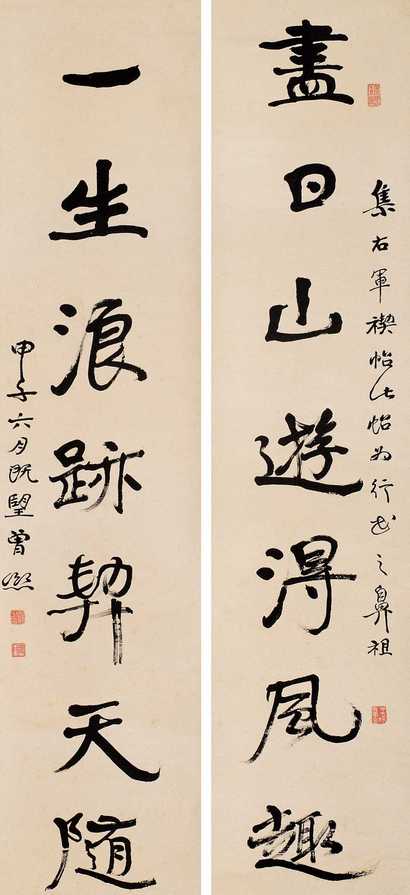 盡日山遊得風趣
集右軍禊帖此帖為行書之鼻祖
一生浪跡契天隨
甲子六月既望曾熙